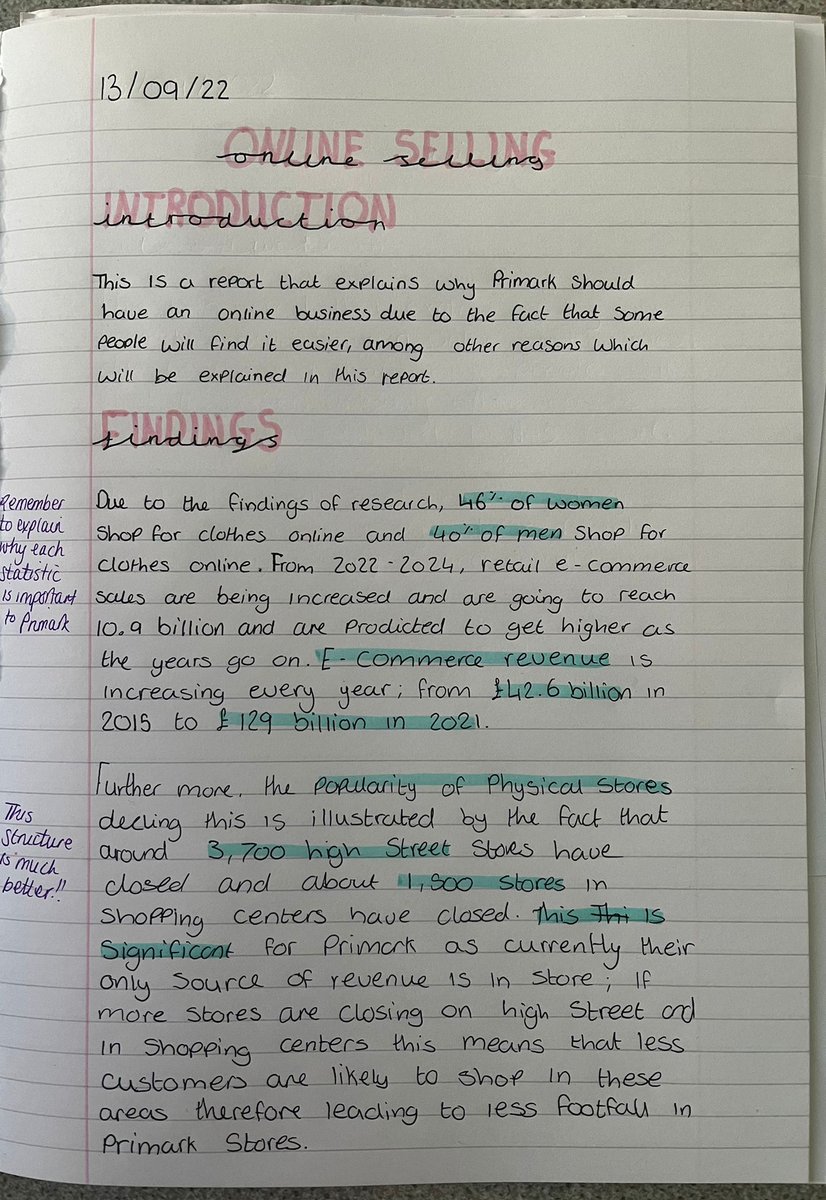 13/09/22
ONLINE SELLING
online selling
INTRODUCTION
introduction
This is a report that explains why Primark should
have an online business due to the fact that some
people will find it easier, among other reasons which
will be explained in this report.
FINDINGS
findings
Due to the findings of research, 46% of women
shop for clothes online and 40% of men shop for
clothes online. From 2022-2024, retail e-commerce
sales are being increased and are going to reach
10.9 billion and are prodicted to get higher as
the years go on. E-commerce revenue is
increasing every year; from £42.6 billion in
2015 to £129 billion in 2021.
Remember
to explain
why each
statistic
is important
to Primark
Further more, the popularity of Physical stores
decling this is illustrated by the fact that
around 3,700 high street stores have
closed and about 1,900 stores in
shopping centers have closed. This Thi is
significant for Primark as currently their
only source of revenue is in store; if
more stores are closing on high street and
in shopping centers this means that less
customers are likely to shop in these
areas therefore leading to less footfall in
Primark stores.
This
structure
is much
better!!